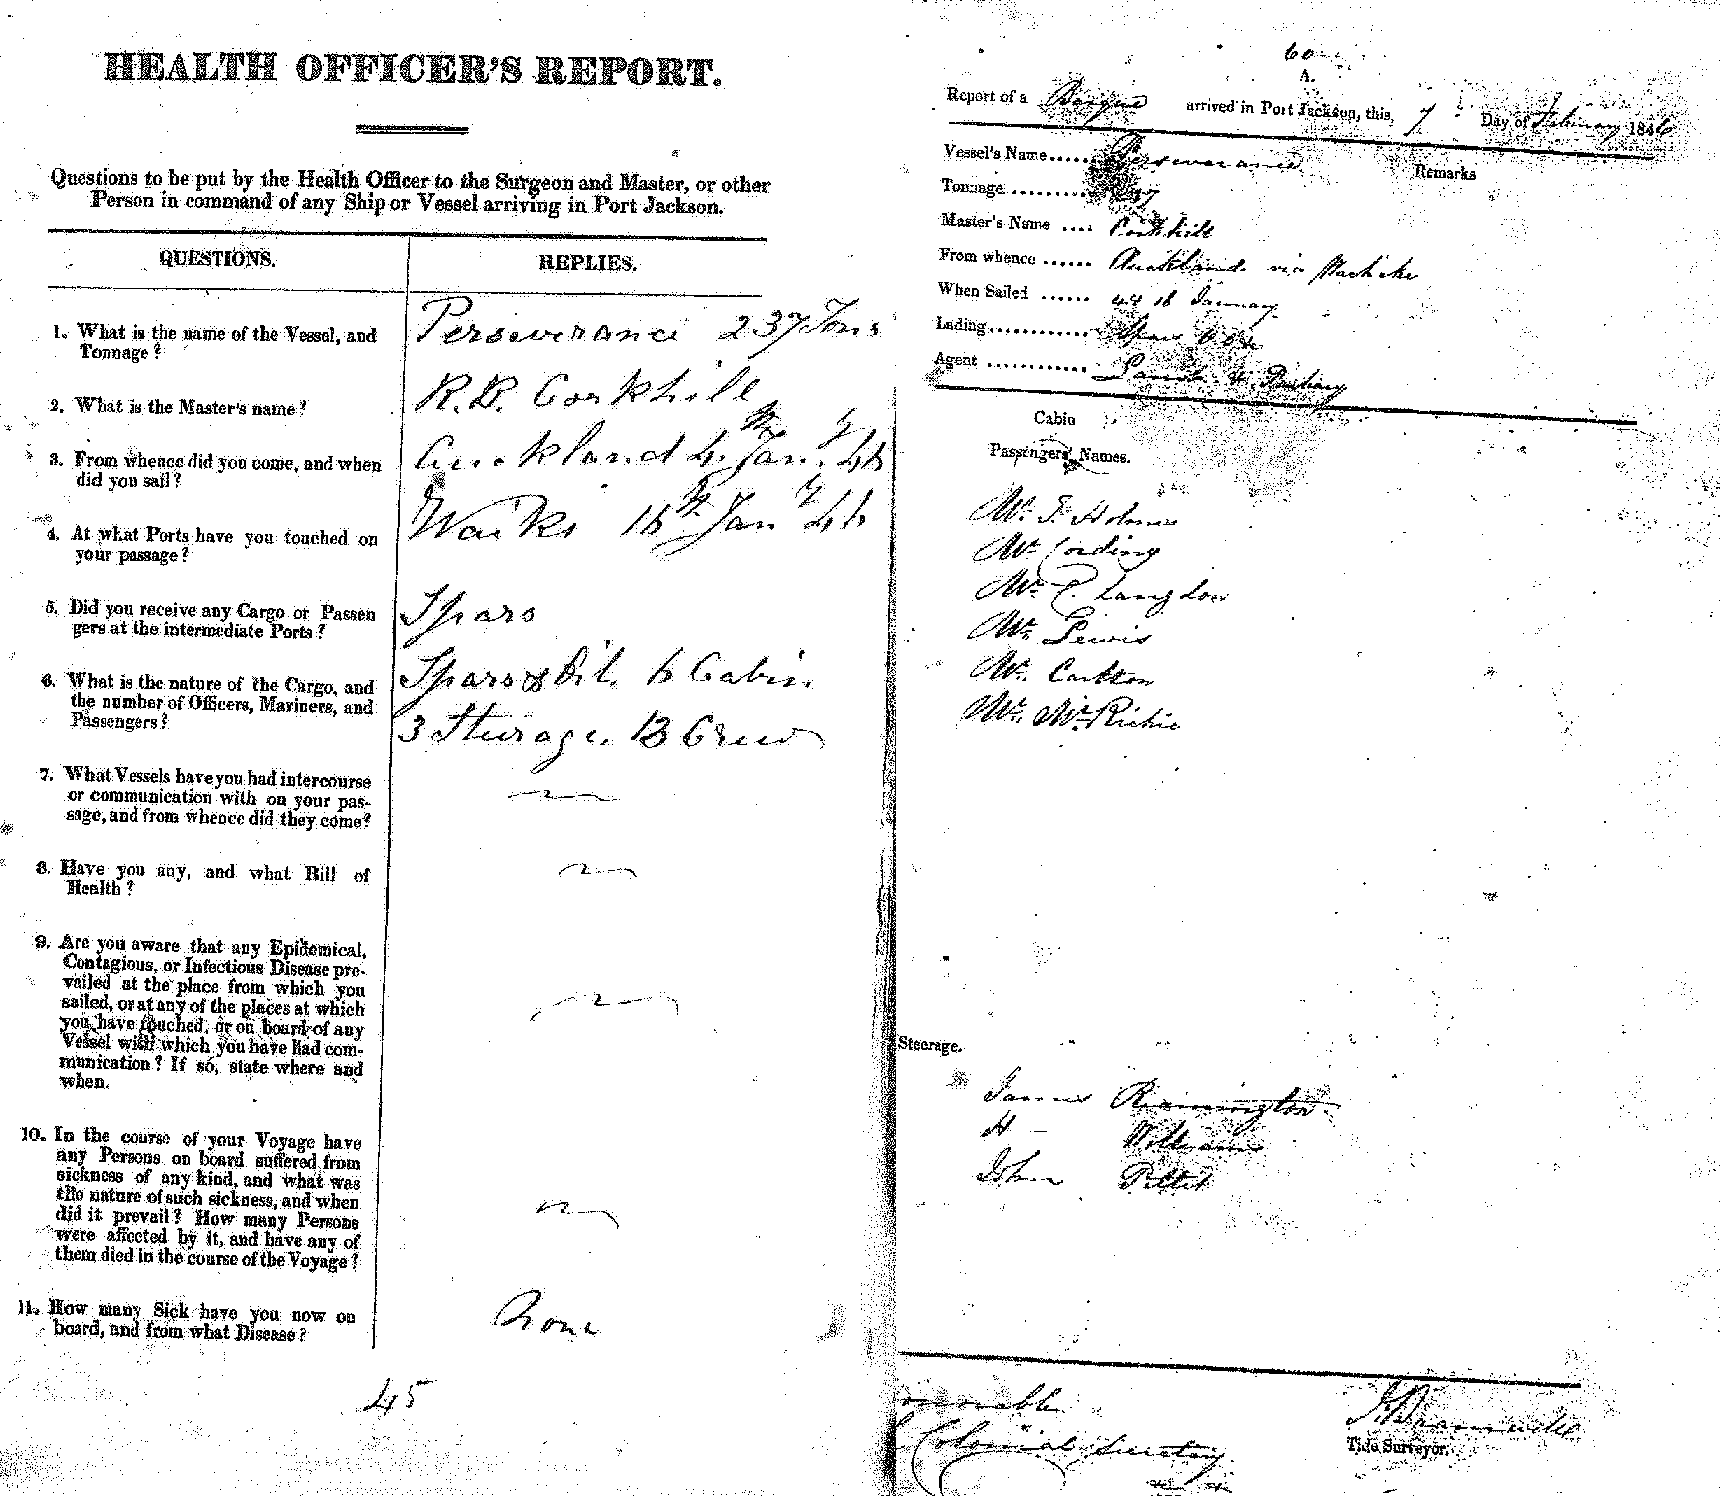 HEALTH OFFICER'S REPORT.
Questions to be put by the Health Officer to the Surgeon and Master, or other
Person in command of any Ship or Vessel arriving in Port Jackson.
QUESTIONS.
REPLIES.
1. What is the name of the Vessel, and
Tonnage?
Perseverance 237 Tons
2. What is the Master's name?
R. B. Corkhill
3. From whence did you come, and when
did you sail?
Auckland 4th Jany 46
4. At what Ports have you touched on
your passage?
16th Jany 46
5. Did you receive any Cargo or Passen
gers at the intermediate Ports?
Spars
6. What is the nature of the Cargo, and
the number of Officers, Mariners, and
Passengers?
Spars & Oil. 6 Cabin
3 Steerage. 13 Crew
7. What Vessels have you had intercourse
or communication with on your pas-
sage, and from whence did they come?
8. Have you any, and what Bill of
Health?
9. Are you aware that any Epidemical,
Contagious, or Infectious Disease pre-
vailed at the place from which you
sailed, or at any of the places at which
you have touched, or on board of any
Vessel with which you have had com-
munication? If so, state where and
when.
10. In the course of your Voyage have
any Persons on board suffered from
sickness of any kind, and what was
the nature of such sickness, and when
did it prevail? How many Persons
were affected by it, and have any of
them died in the course of the Voyage?
11. How many Sick have you now on
board, and from what Disease?
None
45
60
A.
Report of a Barque arrived in Port Jackson, this, 7th Day of February 1846
Vessel's Name...... Perseverance
Remarks
Tonnage .......... 237
Master's Name .... Corkhill
From whence ...... Auckland via
When Sailed ...... 4 & 16 January
Lading............. Spars &
Agent ............
Cabin
Passengers' Names.
Mr. T. Holmes
Mr. Cording
Mr. C. Langdon
Mr. Lewis
Mr. Carlton
Mr. McRichie
Steerage.
James Rimmington
H - Williams
John Pettit
Colonial Secretary
Tide Surveyor.